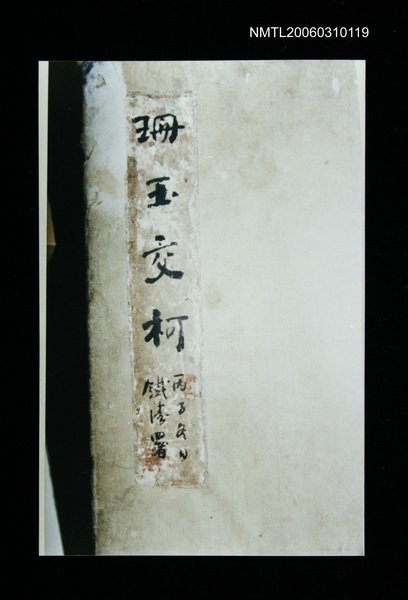 NMTL20060310119
珊玉交柯
丙子冬日
鐵濤署